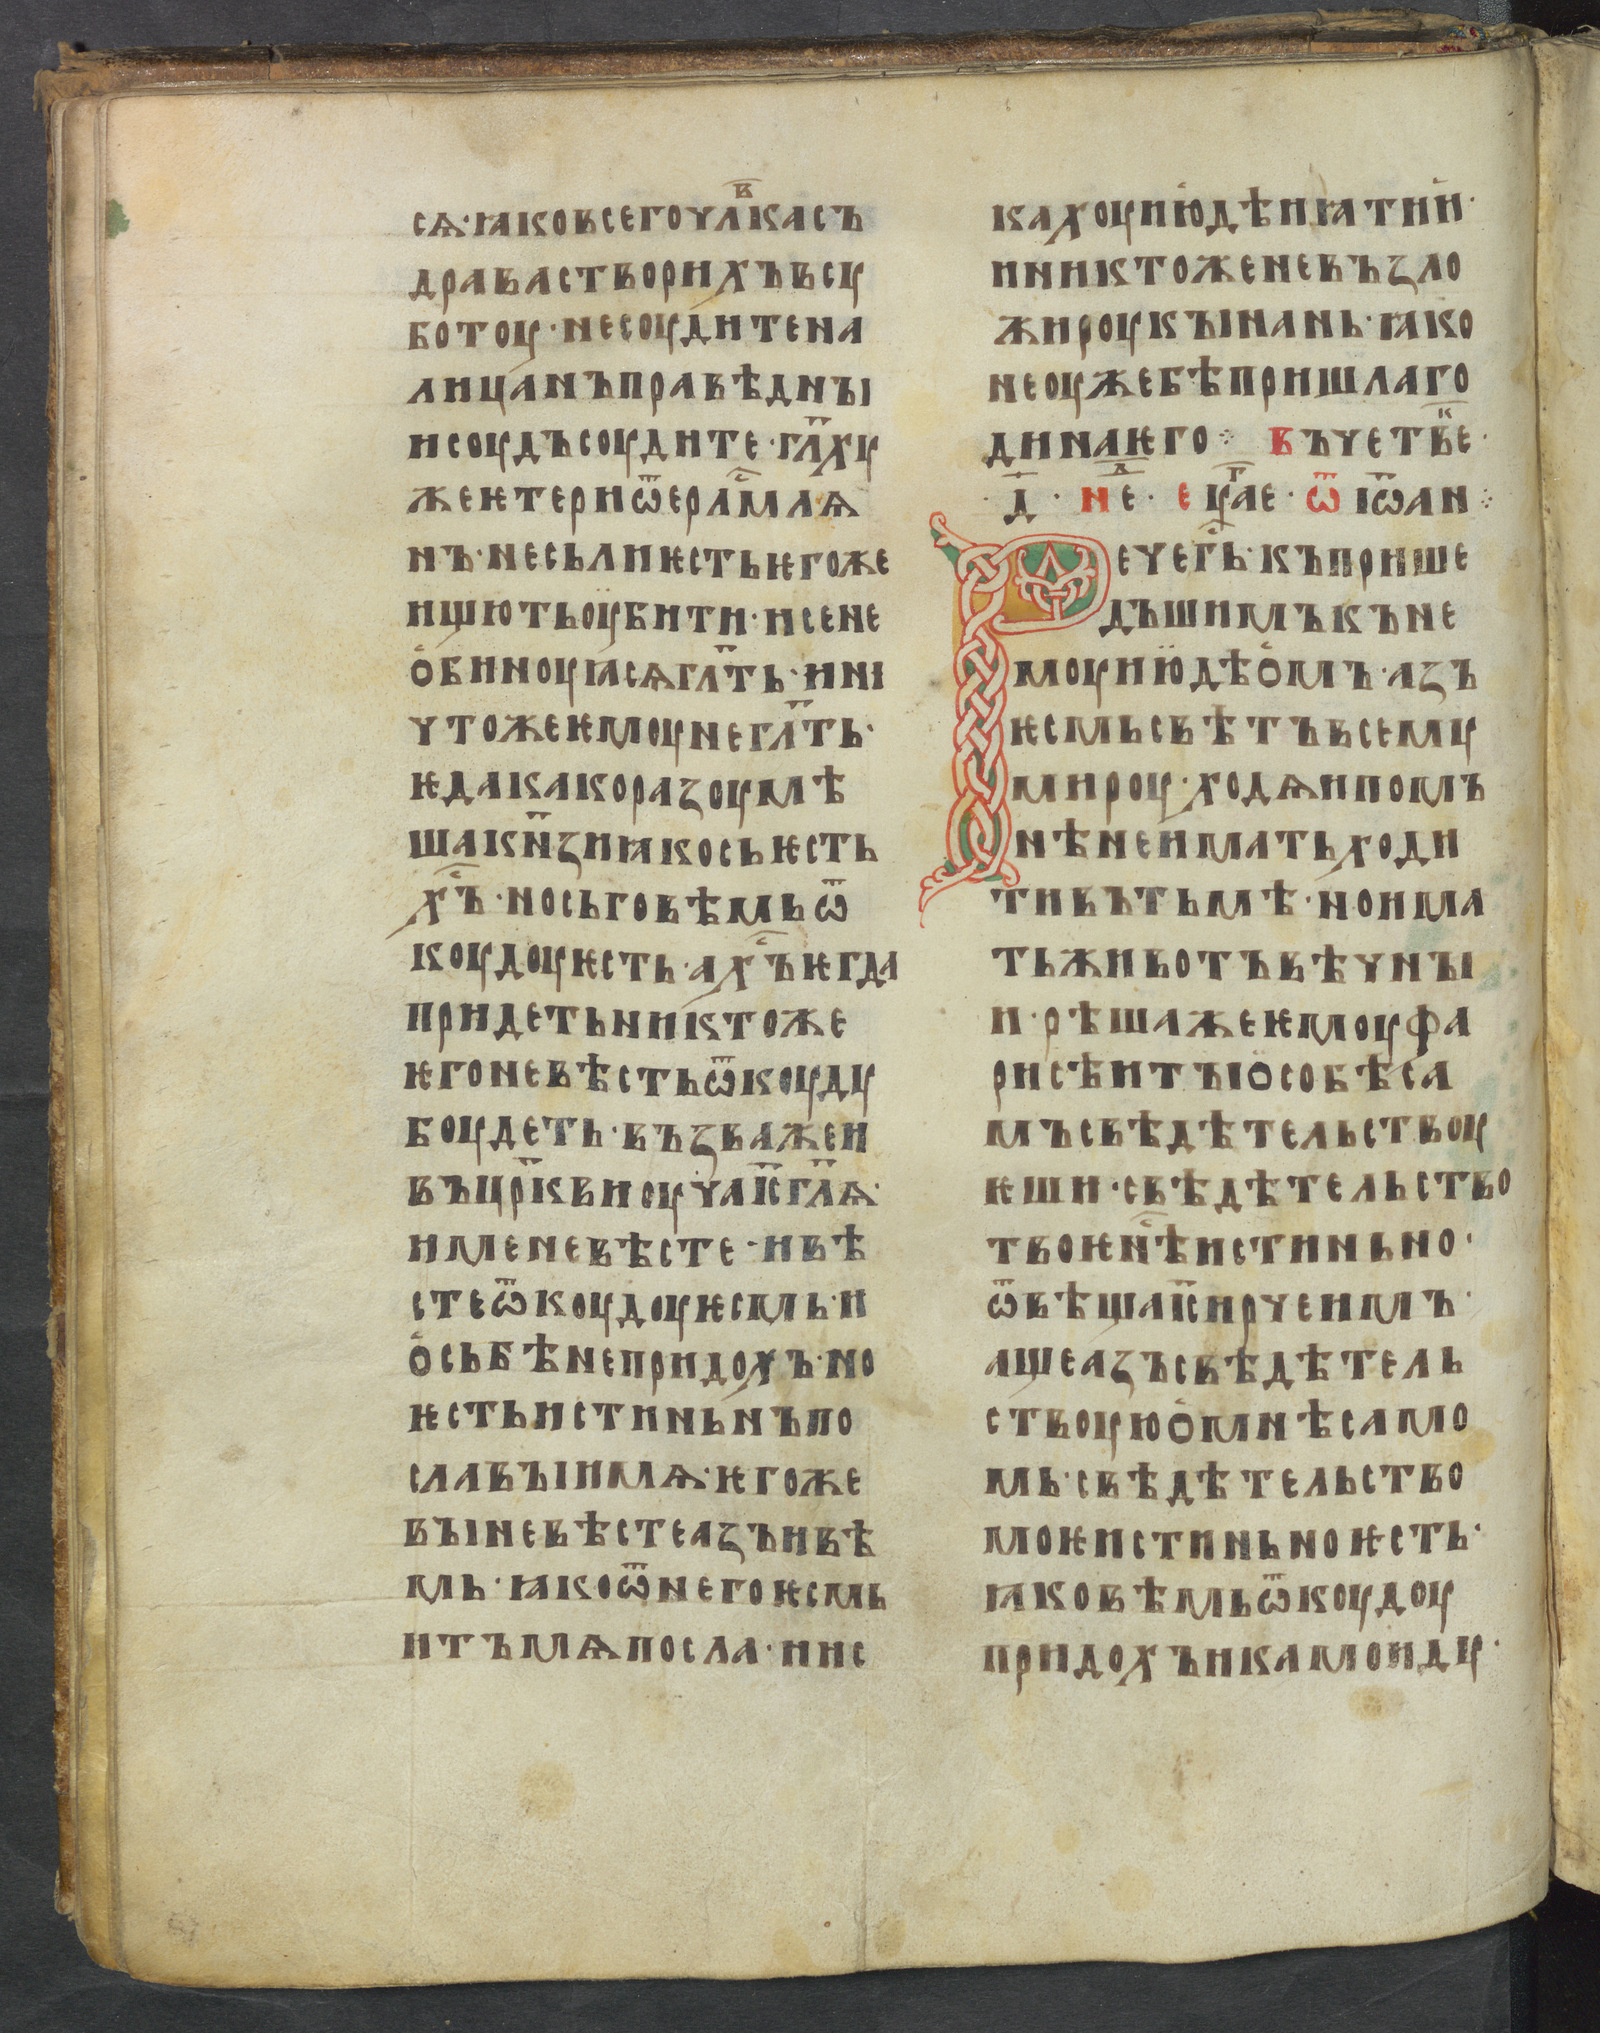 сѧ·ꙗковсегочл҃вкасъ
дравастворихъвсꙋ
ботоу·несоудитена
лицанъправѣдныі
исоудъсоудите·гл҃ахꙋ
жеѥтериѿерс҃лмлѧ
нъ·несьлиѥстьѥгоже
ищютьоубити·исене
обинꙋꙗсѧгл҃ть·ині
чтожеѥмоунегл҃ть·
ѥдакакоразоумѣ
шакн҃ꙁиꙗкосьѥсть
хс҃ъ·носьговѣмьѿ
коудоуѥсть·ахс҃ъѥгда
придетьниктоже
ѥгоневѣстьѿкоудꙋ
боудеть·въꙁважеи
въцр҃квиоучаіс҃гл҃ѧ·
именевѣсте·ивѣ
стеѿкоудоуѥсмь·и
осьбѣнепридохъ·но
ѥстьистиньнъпо
славыимѧ·ѥгоже
выіневѣстеаꙁъивѣ
мь·ꙗкоѿнегоѥсмь
итъмѧпосла·иис
кахоуиюдѣиꙗтии·
иниктоженевъꙁло
жироукыінань·ꙗко
неоужебѣпришлаго
динаѥго⁘ въчетвк҃е·
·д҃· нед҃· ег҃ꙋае·ѿіѡан⁘
Речегс҃ь·къприше
дъшимъкъне
моуиюдѣомъ·аꙁъ
ѥсмьсвѣтъвсемꙋ
мироу·ходѧипомъ
нѣнеиматьходи
тивътьмѣ·ноима
тьживотъвѣчныі
и·рѣшажеѥмоуфа
рисѣитыіособѣса
мъсвѣдѣтельствоу
ѥши·свѣдѣтельство
твоѥнс҃ѣистиньно·
ѿвѣщаіс҃ирчеимъ·
ащеаꙁъсвѣдѣтель
ствоуюомнѣсамо
мь·свѣдѣтельство
моѥистиньноѥсть·
ꙗковѣмьѿкоудоу
придохъикамоидꙋ·